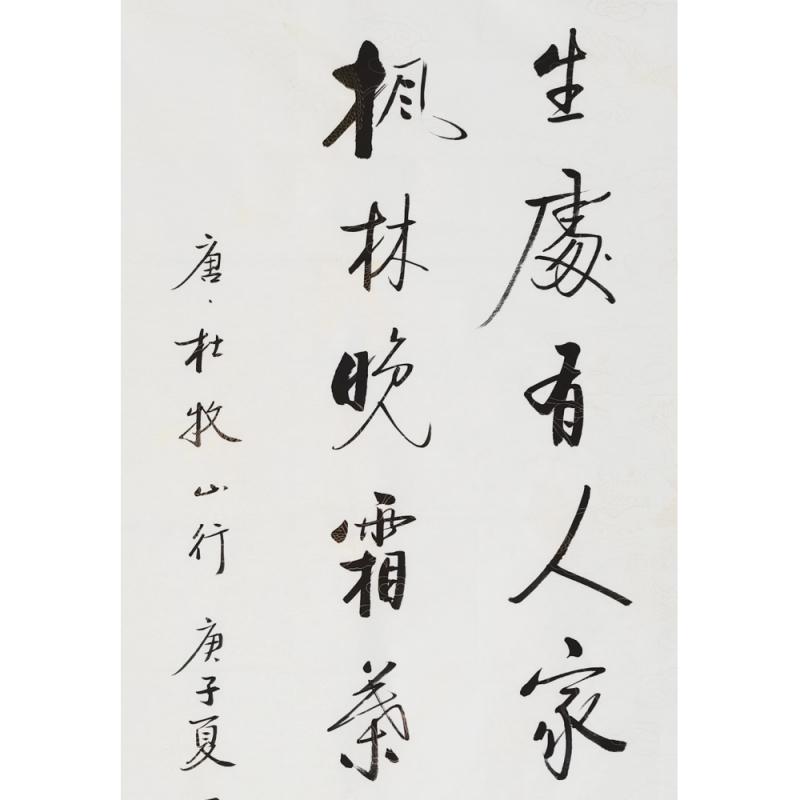 生處有人家
楓林晚霜葉
唐、杜牧山行 庚子夏